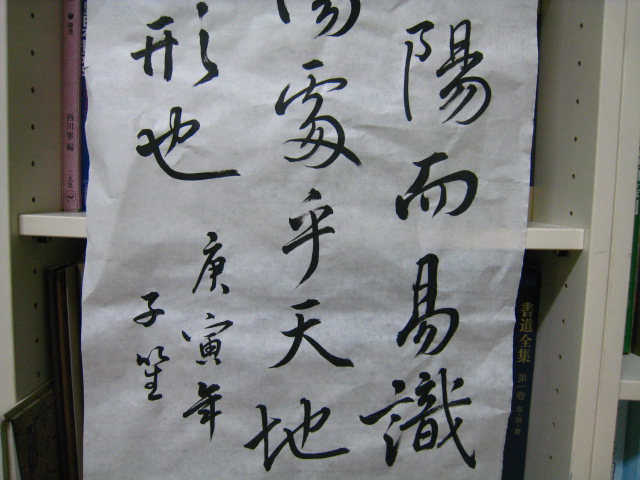 陽而易識
陽處乎天地
形也
庚寅年
子笙
書道全集
第一卷
西川寧編